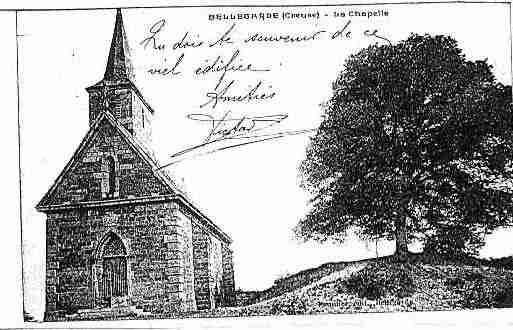 BELLEGARDE (Creuse) - La Chapelle
Tu dois te souvenir de ce
vieil édifice.
Amitiés